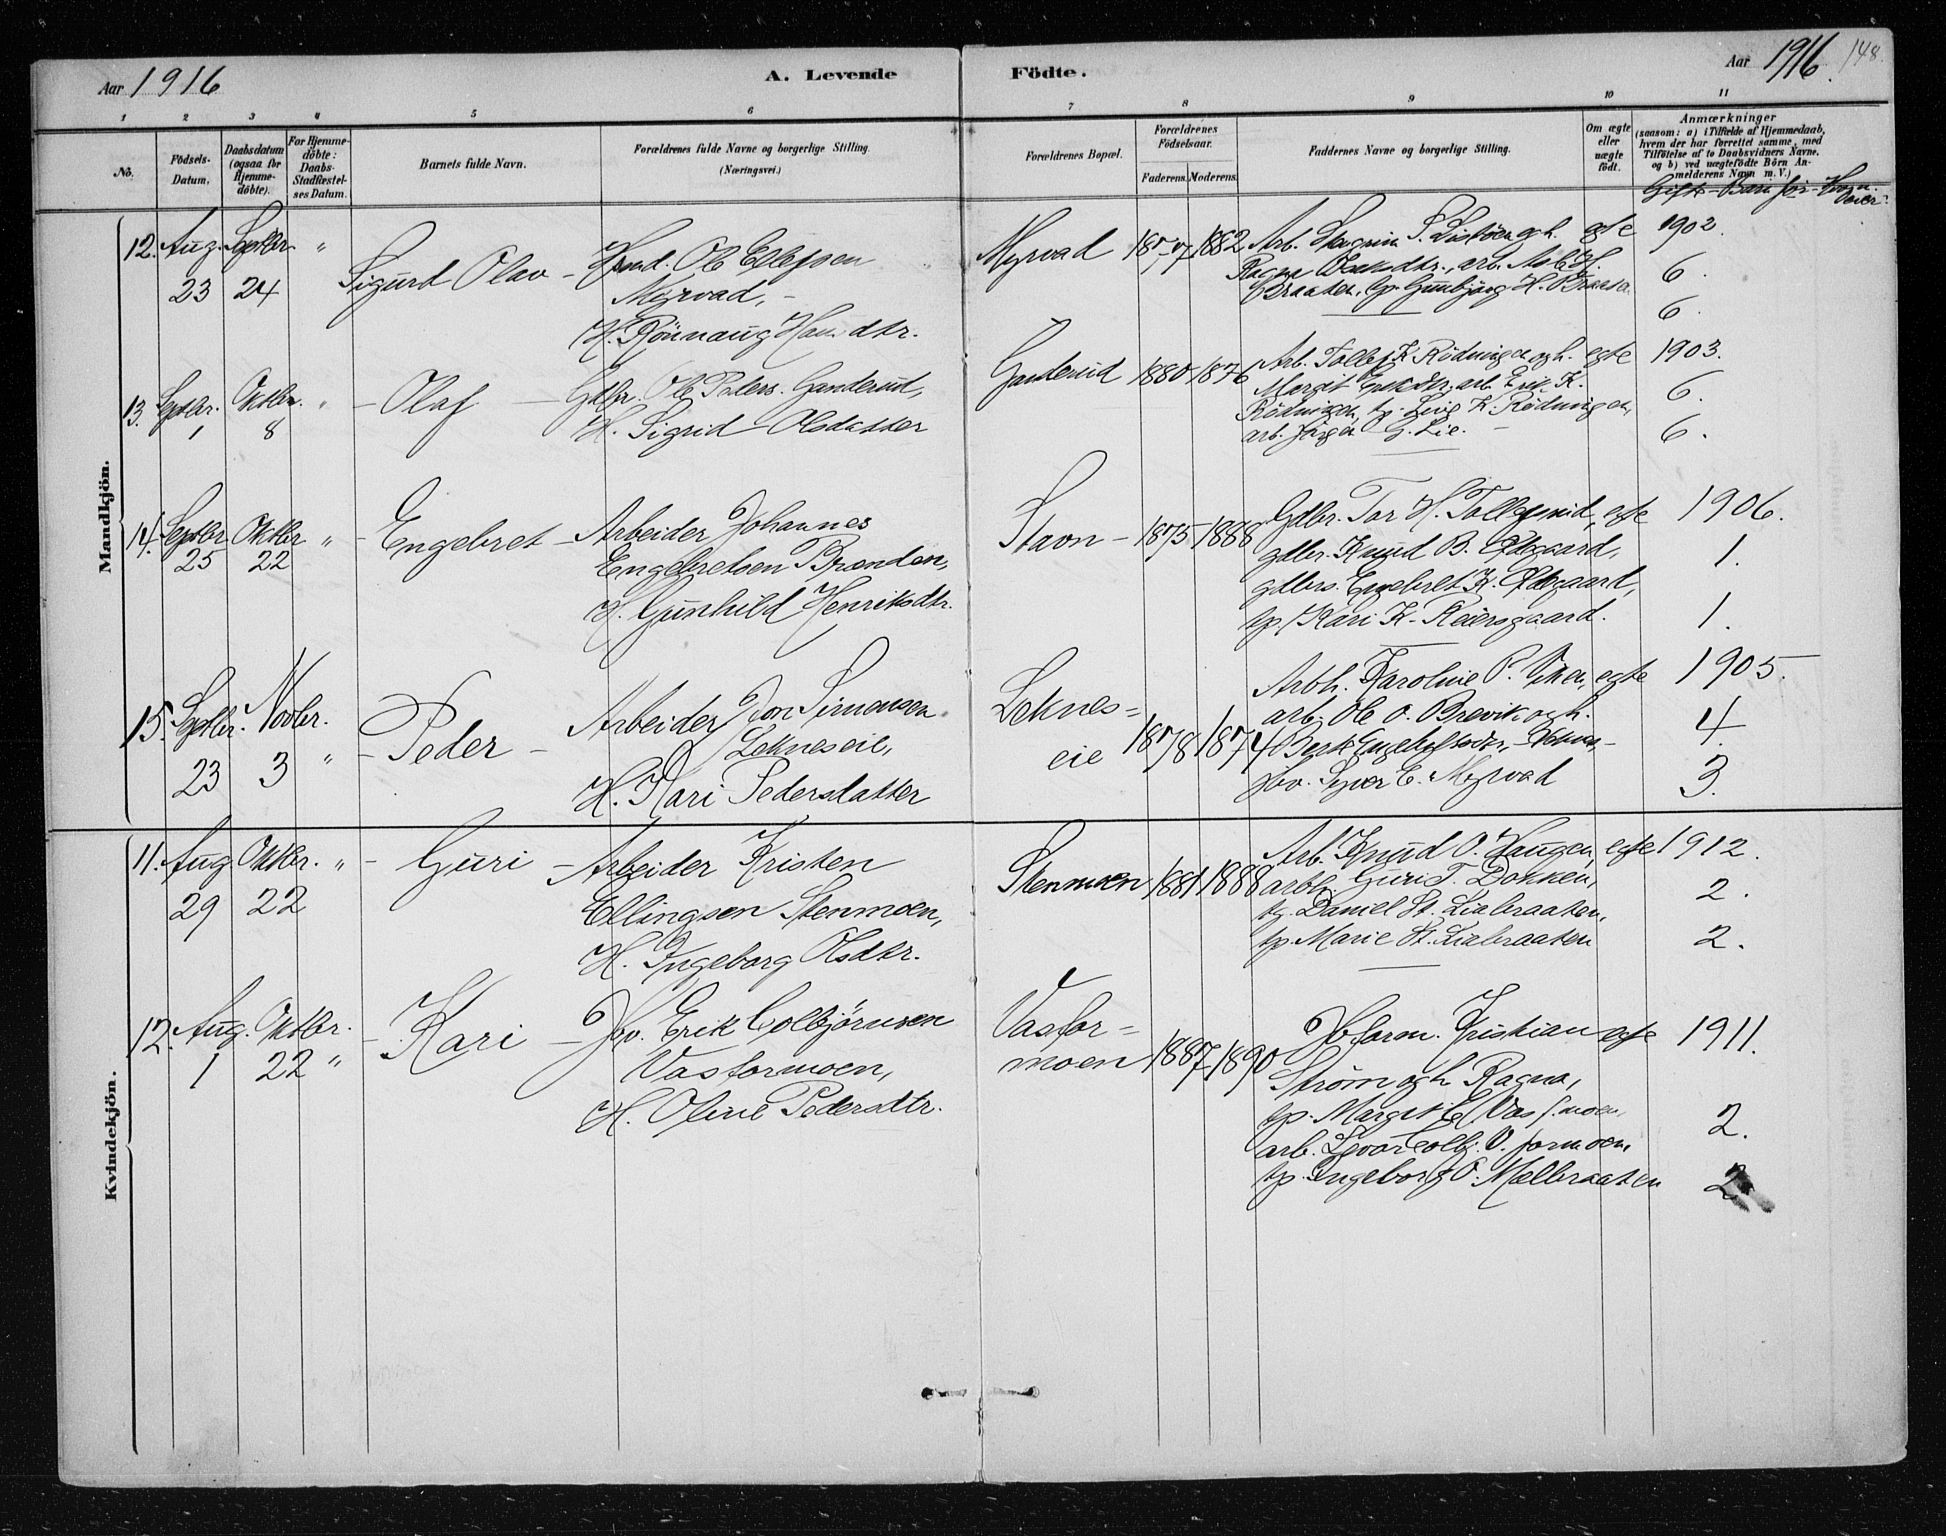 Aar 1916
A. Levende Födte.
Aar 1916.
148.
1 2 3 4 5 6 7 8 9 10 11
No.
Födsels-Datum.
Daabsdatum (ogsaa for Hjemme-döbte).
For Hjemme-döbte: Daabs-Stadfæstel-ses Datum.
Barnets fulde Navn.
Forældrenes fulde Navne og borgerlige Stilling. (Næringsvei.)
Forældrenes Bopæl.
Forældrenes Födselsaar.
Faderens. Moderens.
Faddernes Navne og borgerlige Stilling.
Om ægte eller uægte födt.
Anmærkninger
(saasom: a) i Tilfælde af Hjemmedaab,
hvem der har forrettet samme, med
Tilföielse af to Daabsvidners Navne,
og b) ved uægtefödte Börn An-
melderens Navn m. V.)
Gifte - Barn
Mandkjön.
12. Aug. 23 Septbr. 24 "
Sigurd Olav -
Ole Ellefsen
Myrvad,
H. Rönnaug
Myrvad
1882
Arb.
Braaten, tp. Gunbjørg H.
egte
1902.
6.
6.
13. Septbr. 1 Oktbr. 8 "
- Olaf -
Gdbr. Ole Peders. Ganderud,
H. Sigrid Olsdatter
Ganderud
1880 1876
Arb. Tollef K. Rödningen og h.
Margit arb. Erik K.
Rödningen, tp. Liv K. Rödningen,
arb. Jörgen G. Lie. -
egte
1903.
6.
6.
14. Septbr. 25 Oktbr. 22 " -
Engebret -
Arbeider Johannes
Engebretsen Brenden,
H. Gunhild Henriksdtr.
Stavn -
1875 1888
Gdbr. Tor H.
gdbr. Knud B.
gdbrs. Engebret K.
tp. Kari K. Reiersgaard.
egte
1906.
1.
1.
15. Septbr. 23 Novbr. 3 "
- Peder -
Arbeider Jon Simensen
Lekneseie,
H. Kari Pedersdatter
Leknes=
eie
1878 1874
Arbh. Karoline P. Viken,
arb. Ole O. Brevik og h.
Syver E. Myrvad
egte
1905.
4.
3.
Kvindekjön.
11. Aug. 29 Oktbr. 22 " -
Guri -
Arbeider Kristen
Ellingsen Stenmoen,
H. Ingeborg Olsdtr.
Stenmoen
1881 1888
Arb. Knud O. Haugen,
arbh. Guri T. Dokken,
tg. Daniel St. Liabraaten,
tp. Marie St. Liabraaten
egte
1912.
2.
2.
12. Aug. 1 Oktbr. 22 "
- Kari -
Jbv. Erik Colbjörnsen
Vasformoen,
H. Oline Pedersdtr.
Vasfor=
moen
1887 1890
Kristian
Ström og h. Ragna,
tp. Margit
arb. Colbj. V. formoen,
tp. Ingeborg O. Mælbraaten
egte
1911.
2.
2